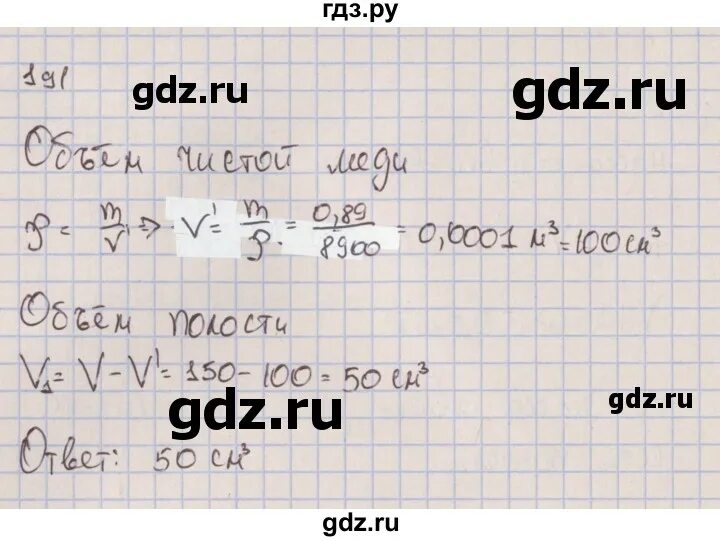 гдз.ру
191
gdz.ru
gdz.ru
Объём чистой меди
ρ = m/V' => V' = m/ρ = 0,89/8900 = 0,0001 м³ = 100 см³
Объём полости
V₁ = V - V' = 150 - 100 = 50 см³
gdz.ru
gdz.ru
Ответ: 50 см³
gdz.ru